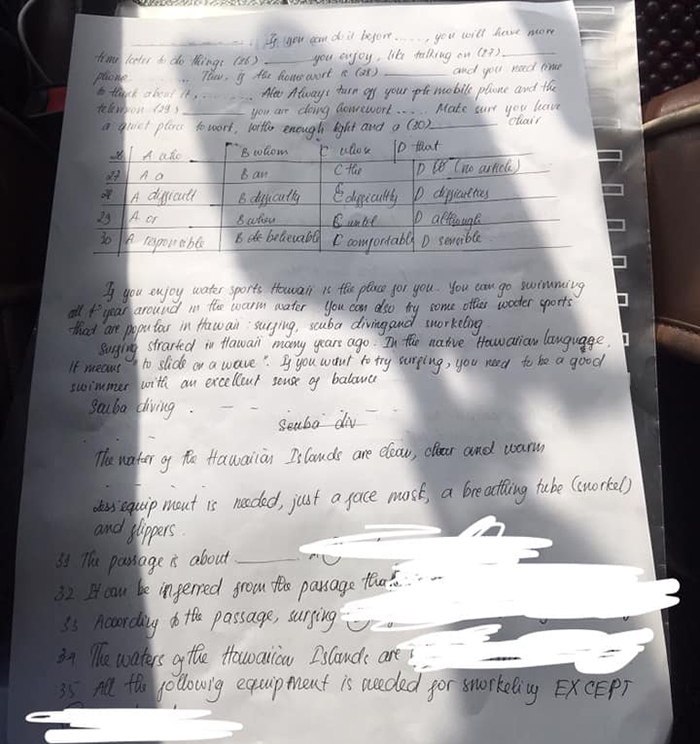 If you can do it before....., you will have more
time later to do things (26) ______ you enjoy, like talking on (27) ______
phone ....... Then, if the homework is (28) ______ and you need time
to think about it, ........ Also Always turn off your mobile phone and the
television (29) ______ you are doing homework ..... Make sure you have
a quiet place to work, with enough light and a (30) ______ chair
26 A who B whom C whose D that
27 A a B an C the D (no article)
28 A difficult B difficulty C D difficulties
29 A or B when C until D although
30 A responsible B believable C comfortable D sensible
If you enjoy water sports Hawaii is the place for you. You can go swimming
all year around in the warm water You can also try some other water sports
that are popular in Hawaii : surfing, scuba diving and snorkeling.
Surfing strarted in Hawaii many years ago. In the native Hawaiian language,
it means "to slide on a wave". If you want to try surfing, you need to be a good
swimmer with an excellent sense of balance
Scuba diving.
Scuba div
The water of the Hawaiian Islands are clean, clear and warm
less equipment is needed, just a face mask, a breathing tube (snorkel)
and flippers.
31 The passage is about ______
32 It can be inferred from the passage that
33 According to the passage, surfing
34 The waters of the Hawaiian Islands are
35 All the followig equipment is needed for snorkeling EXCEPT